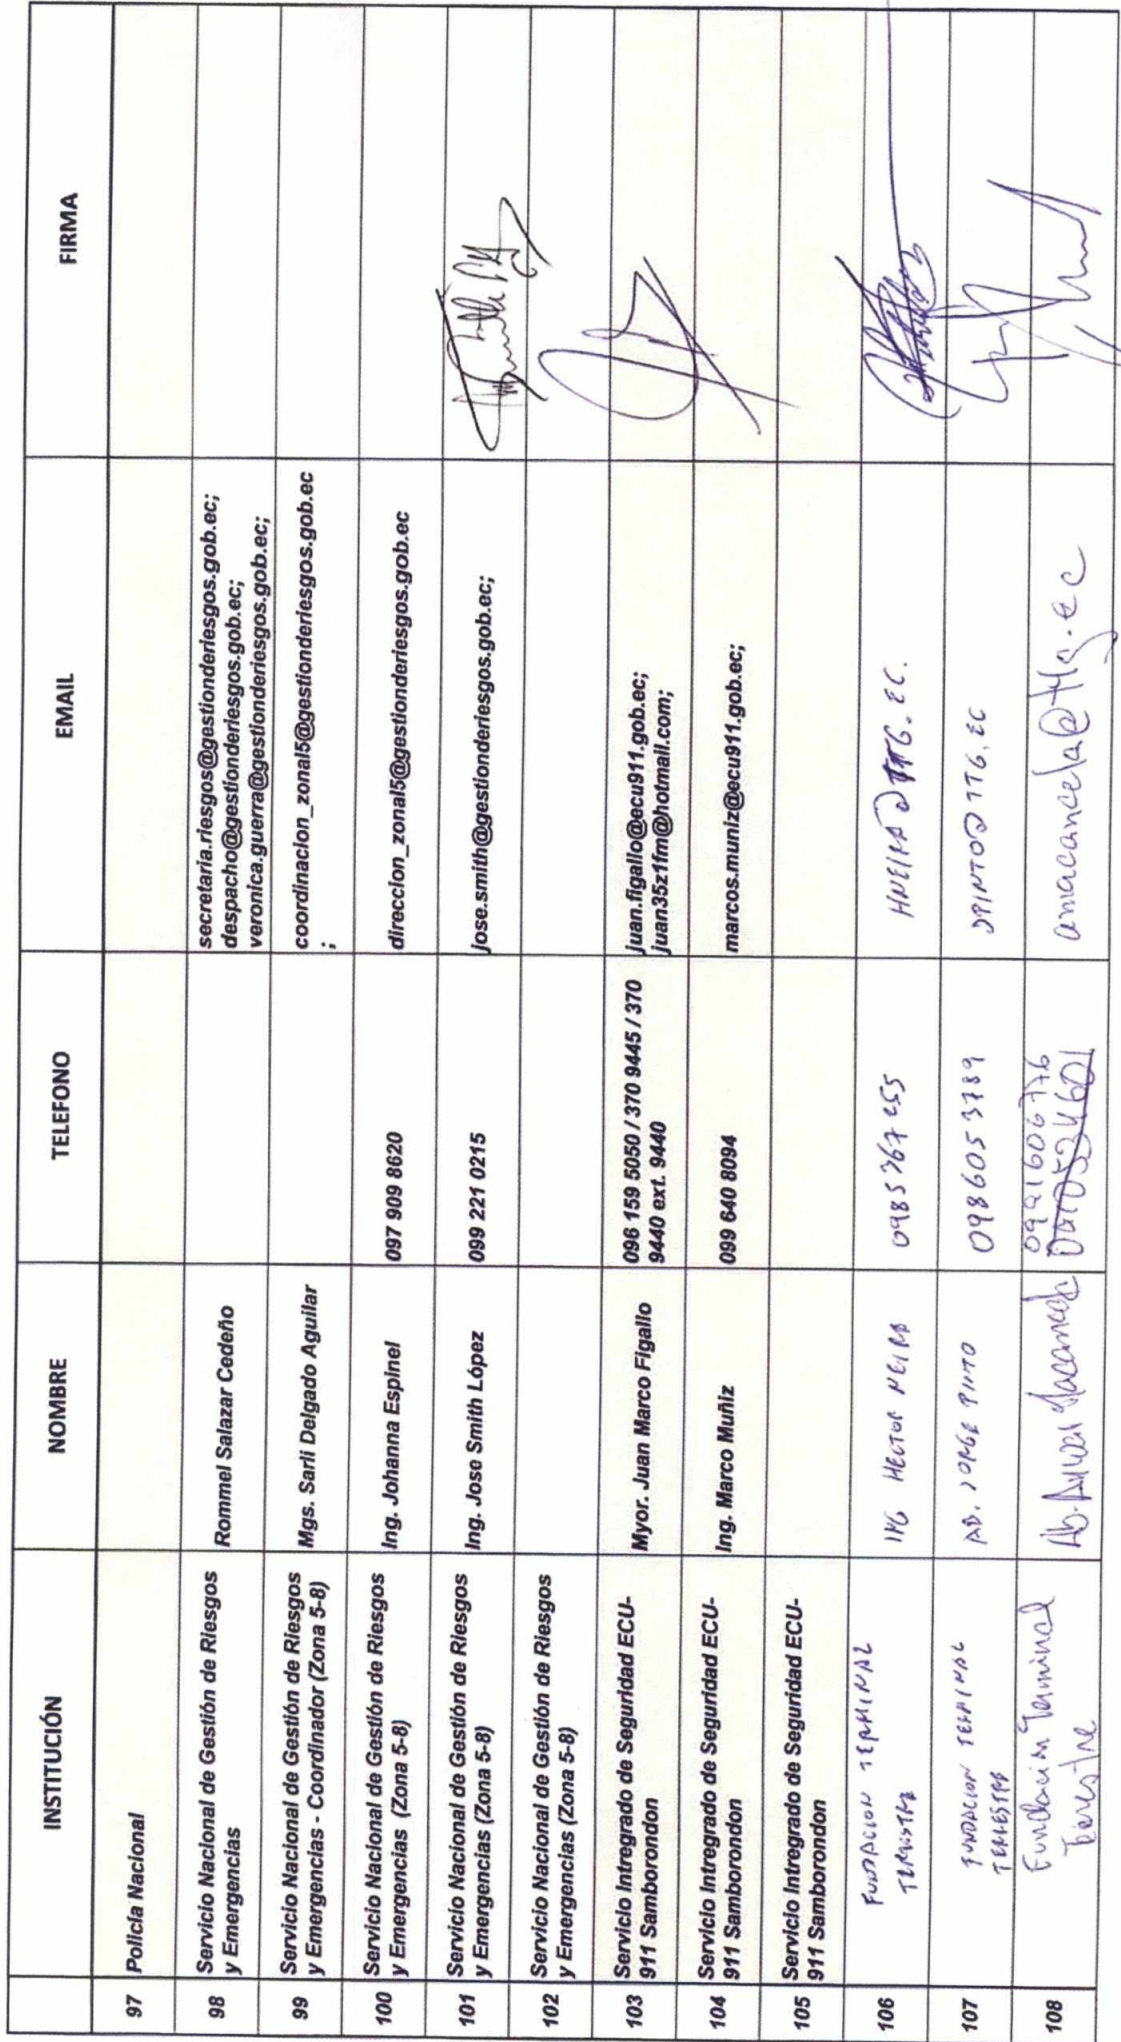 INSTITUCIÓN NOMBRE TELEFONO EMAIL FIRMA
97 Policía Nacional
98 Servicio Nacional de Gestión de Riesgos
y Emergencias
Rommel Salazar Cedeño
secretaria.riesgos@gestionderiesgos.gob.ec;
despacho@gestionderiesgos.gob.ec;
veronica.guerra@gestionderiesgos.gob.ec;
99 Servicio Nacional de Gestión de Riesgos
y Emergencias - Coordinador (Zona 5-8)
Mgs. Sarli Delgado Aguilar
coordinacion_zonal5@gestionderiesgos.gob.ec
;
100 Servicio Nacional de Gestión de Riesgos
y Emergencias (Zona 5-8)
Ing. Johanna Espinel
097 909 8620
direccion_zonal5@gestionderiesgos.gob.ec
101 Servicio Nacional de Gestión de Riesgos
y Emergencias (Zona 5-8)
Ing. Jose Smith López
099 221 0215
jose.smith@gestionderiesgos.gob.ec;
102 Servicio Nacional de Gestión de Riesgos
y Emergencias (Zona 5-8)
103 Servicio Intregrado de Seguridad ECU-
911 Samborondon
Myor. Juan Marco Figallo
096 159 5050 / 370 9445 / 370
9440 ext. 9440
juan.figallo@ecu911.gob.ec;
juan35z1fm@hotmail.com;
104 Servicio Intregrado de Seguridad ECU-
911 Samborondon
Ing. Marco Muñiz
099 640 8094
marcos.muniz@ecu911.gob.ec;
105 Servicio Intregrado de Seguridad ECU-
911 Samborondon
106 FUNDACION TERMINAL
TERRESTRE
ING HECTOR NEIRA
0985367255
HNEIRA@TTG.EC.
107 FUNDACION TERMINAL
TERRESTRE
AB. JORGE PINTO
0986053789
JPINTO@TTG.EC
108 Fundación Terminal
Terrestre
Ab.
0991606776
0410524601
amacancela@ttg.ec